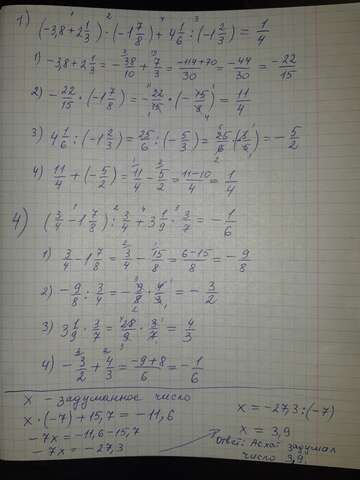 1) (-3,8+2 1/3) · (-1 7/8) + 4 1/6 : (-1 2/3) = 1/4
1) -3,8+2 1/3 = -38/10 + 7/3 = -114+70/30 = -44/30 = -22/15
2) -22/15 · (-1 7/8) = -22/15 · (-15/8) = 11/4
3) 4 1/6 : (-1 2/3) = 25/6 : (-5/3) = 25/6 · (3/5) = -5/2
4) 11/4 + (-5/2) = 11/4 - 5/2 = 11-10/4 = 1/4
4) (3/4 - 1 7/8) : 3/4 + 3 1/9 · 3/7 = -1/6
1) 3/4 - 1 7/8 = 3/4 - 15/8 = 6-15/8 = -9/8
2) -9/8 : 3/4 = -9/8 · 4/3 = -3/2
3) 3 1/9 · 3/7 = 28/9 · 3/7 = 4/3
4) -3/2 + 4/3 = -9+8/6 = -1/6
x - задуманное число
x · (-7) + 15,7 = -11,6
-7x = -11,6 - 15,7
-7x = -27,3
x = -27,3 : (-7)
x = 3,9
Ответ: Асхат задумал
число 3,9.